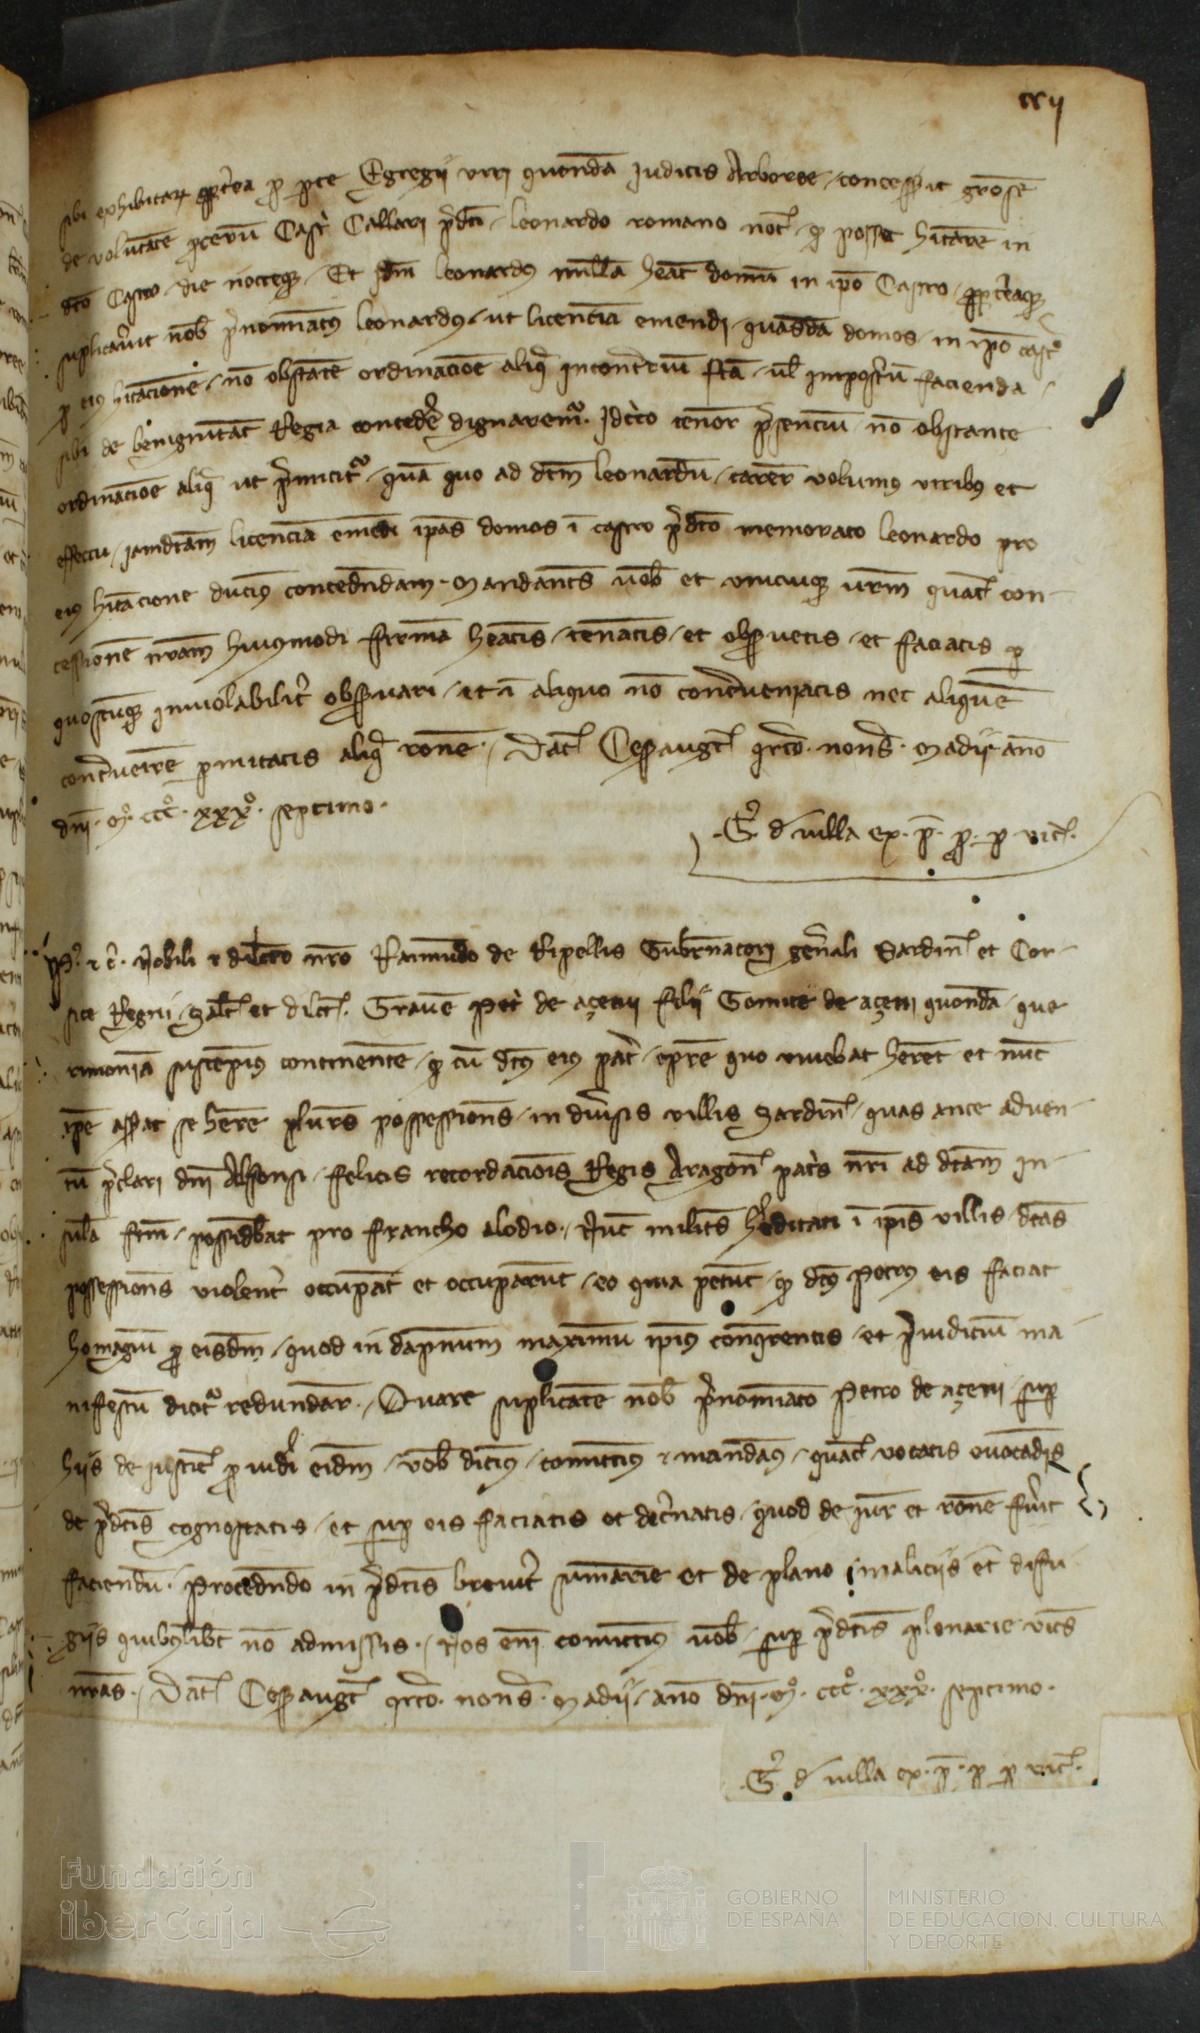 cxij
sibi exhibitarum propterea pro parte Egregii viri quondam Judicis Arboree / concessit
de voluntate Castri Callari predicti / leonardo romano / quod posset habitare in
dicto Castro / die noctuque / Et idem leonardus nullam habeat domum in ipso Castro /
suplicaverit nobis prenominatus leonardus / ut licenciam emendi / quasdam domos / in ipso castro
pro eius habitacione / non obstante ordinacione aliqua incontrarium facta / vel imposterum facienda /
sibi de benignitate Regia concedere dignaremur. Idcirco tenore presencium / non obstante
ordinacione aliqua ut premititur / quam quo ad dictum leonardum / carere volumus viribus et
effectu / iamdictam licenciam emendi ipsas domos in castro predicto memorato leonardo pro
eius habitacione duximus concedendam. Mandantes vobis et unicuique vestrum quatenus con-
cessionem nostram huiusmodi firmam habeatis / teneatis / et observetis / et faciatis per
quoscunque inviolabiliter observari / et in aliquo non contraveniatis nec aliquem
contravenire permitatis aliqua racione. / Dat Cesaraugust quarto nonas Madii anno
dni. Mº. cccº. xxxº. septimo.
G. de villa ex. p. pro. p vic.
P. etc. Nobili et dilecto nostro Raimundo de Ripellis Gubernatori generali Sardin et Cor-
sice Regni / Salt et dilect. Gravem Petri de açeni filii Gomite de açeni quondam / que
rimoniam suscepimus continentem / quod cum dictus eius pater / tempore quo vivebat haberet et nunc
ipse asserat se habere plures possessiones / in diversis villis Sardin / quas ante adven-
tum preclari dni Alfonsi / felicis recordacionis Regis Aragon patris nostri ad dictam in-
sulam factum / possidebat pro francho alodio. / Nunc milites hereditati in ipsis villis / dictas
possessiones violenter occupant et occuparunt / eo quia petunt / quod dictus Petrus eis faciat
homagium pro eisdem / quod in dapnum maximum ipsius conquerentis / et preiudicium ma
nifestum dicitur redundare. / Quare suplicante nobis prenominato Petro de açeni / super
hiis de justicia provideri eidem / vobis dicimus / comittimus et mandamus / quatenus vocatis evocandis
de predictis cognoscatis / et super eis faciatis et decernatis / quod de jure et racione fuerit
faciendum. Procedendo in predictis breviter sumarie et de plano / maliciis et difu
giis quibuslibet non admissis. / Nos enim comittimus vobis / super predictis plenarie vices
nostras. / Dat Cesaraugust quarto nonas Madii / anno dni. Mº. cccº. xxxº. septimo.
G. de villa ex. p. p pro vic.
Fundación
iberCaja
GOBIERNO
DE ESPAÑA
MINISTERIO
DE EDUCACION, CULTURA
Y DEPORTE